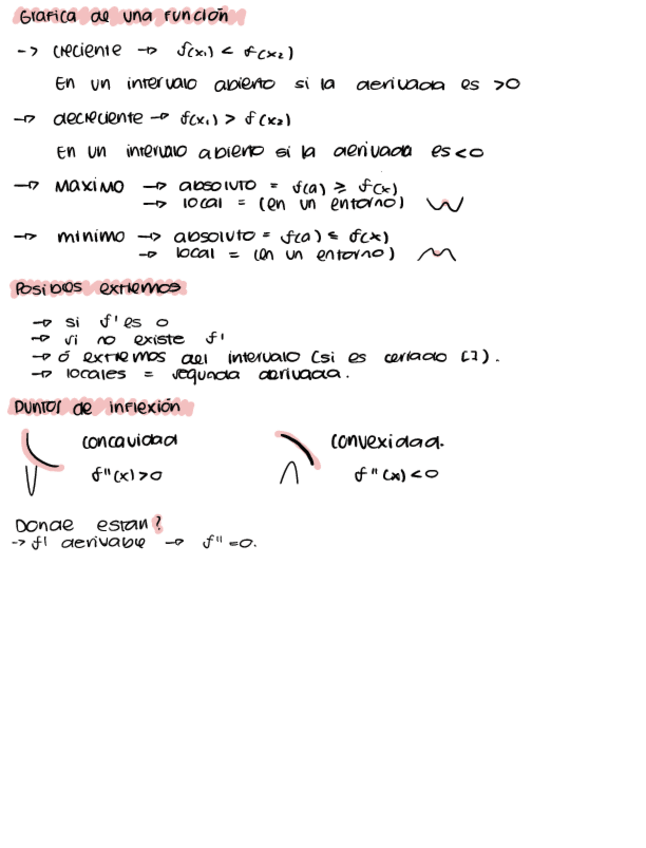 Grafica de una función
-> creciente -> f(x₁) < f(x₂)
En un intervalo abierto si la derivada es >0
-> decreciente -> f(x₁) > f(x₂)
En un intervalo abierto si la derivada es <0
-> Maximo -> absoluto = f(a) ≥ f(x)
-> local = (en un entorno)
-> minimo -> absoluto = f(a) ≤ f(x)
-> local = (en un entorno)
Posibles extremos
-> si f' es 0
-> si no existe f'
-> ó extremos del intervalo (si es cerrado []).
-> locales = segunda derivada.
Puntos de inflexión
concavidad convexidad.
f''(x)>0 f''(x)<0
Donde estan?
-> f' derivable -> f''=0.